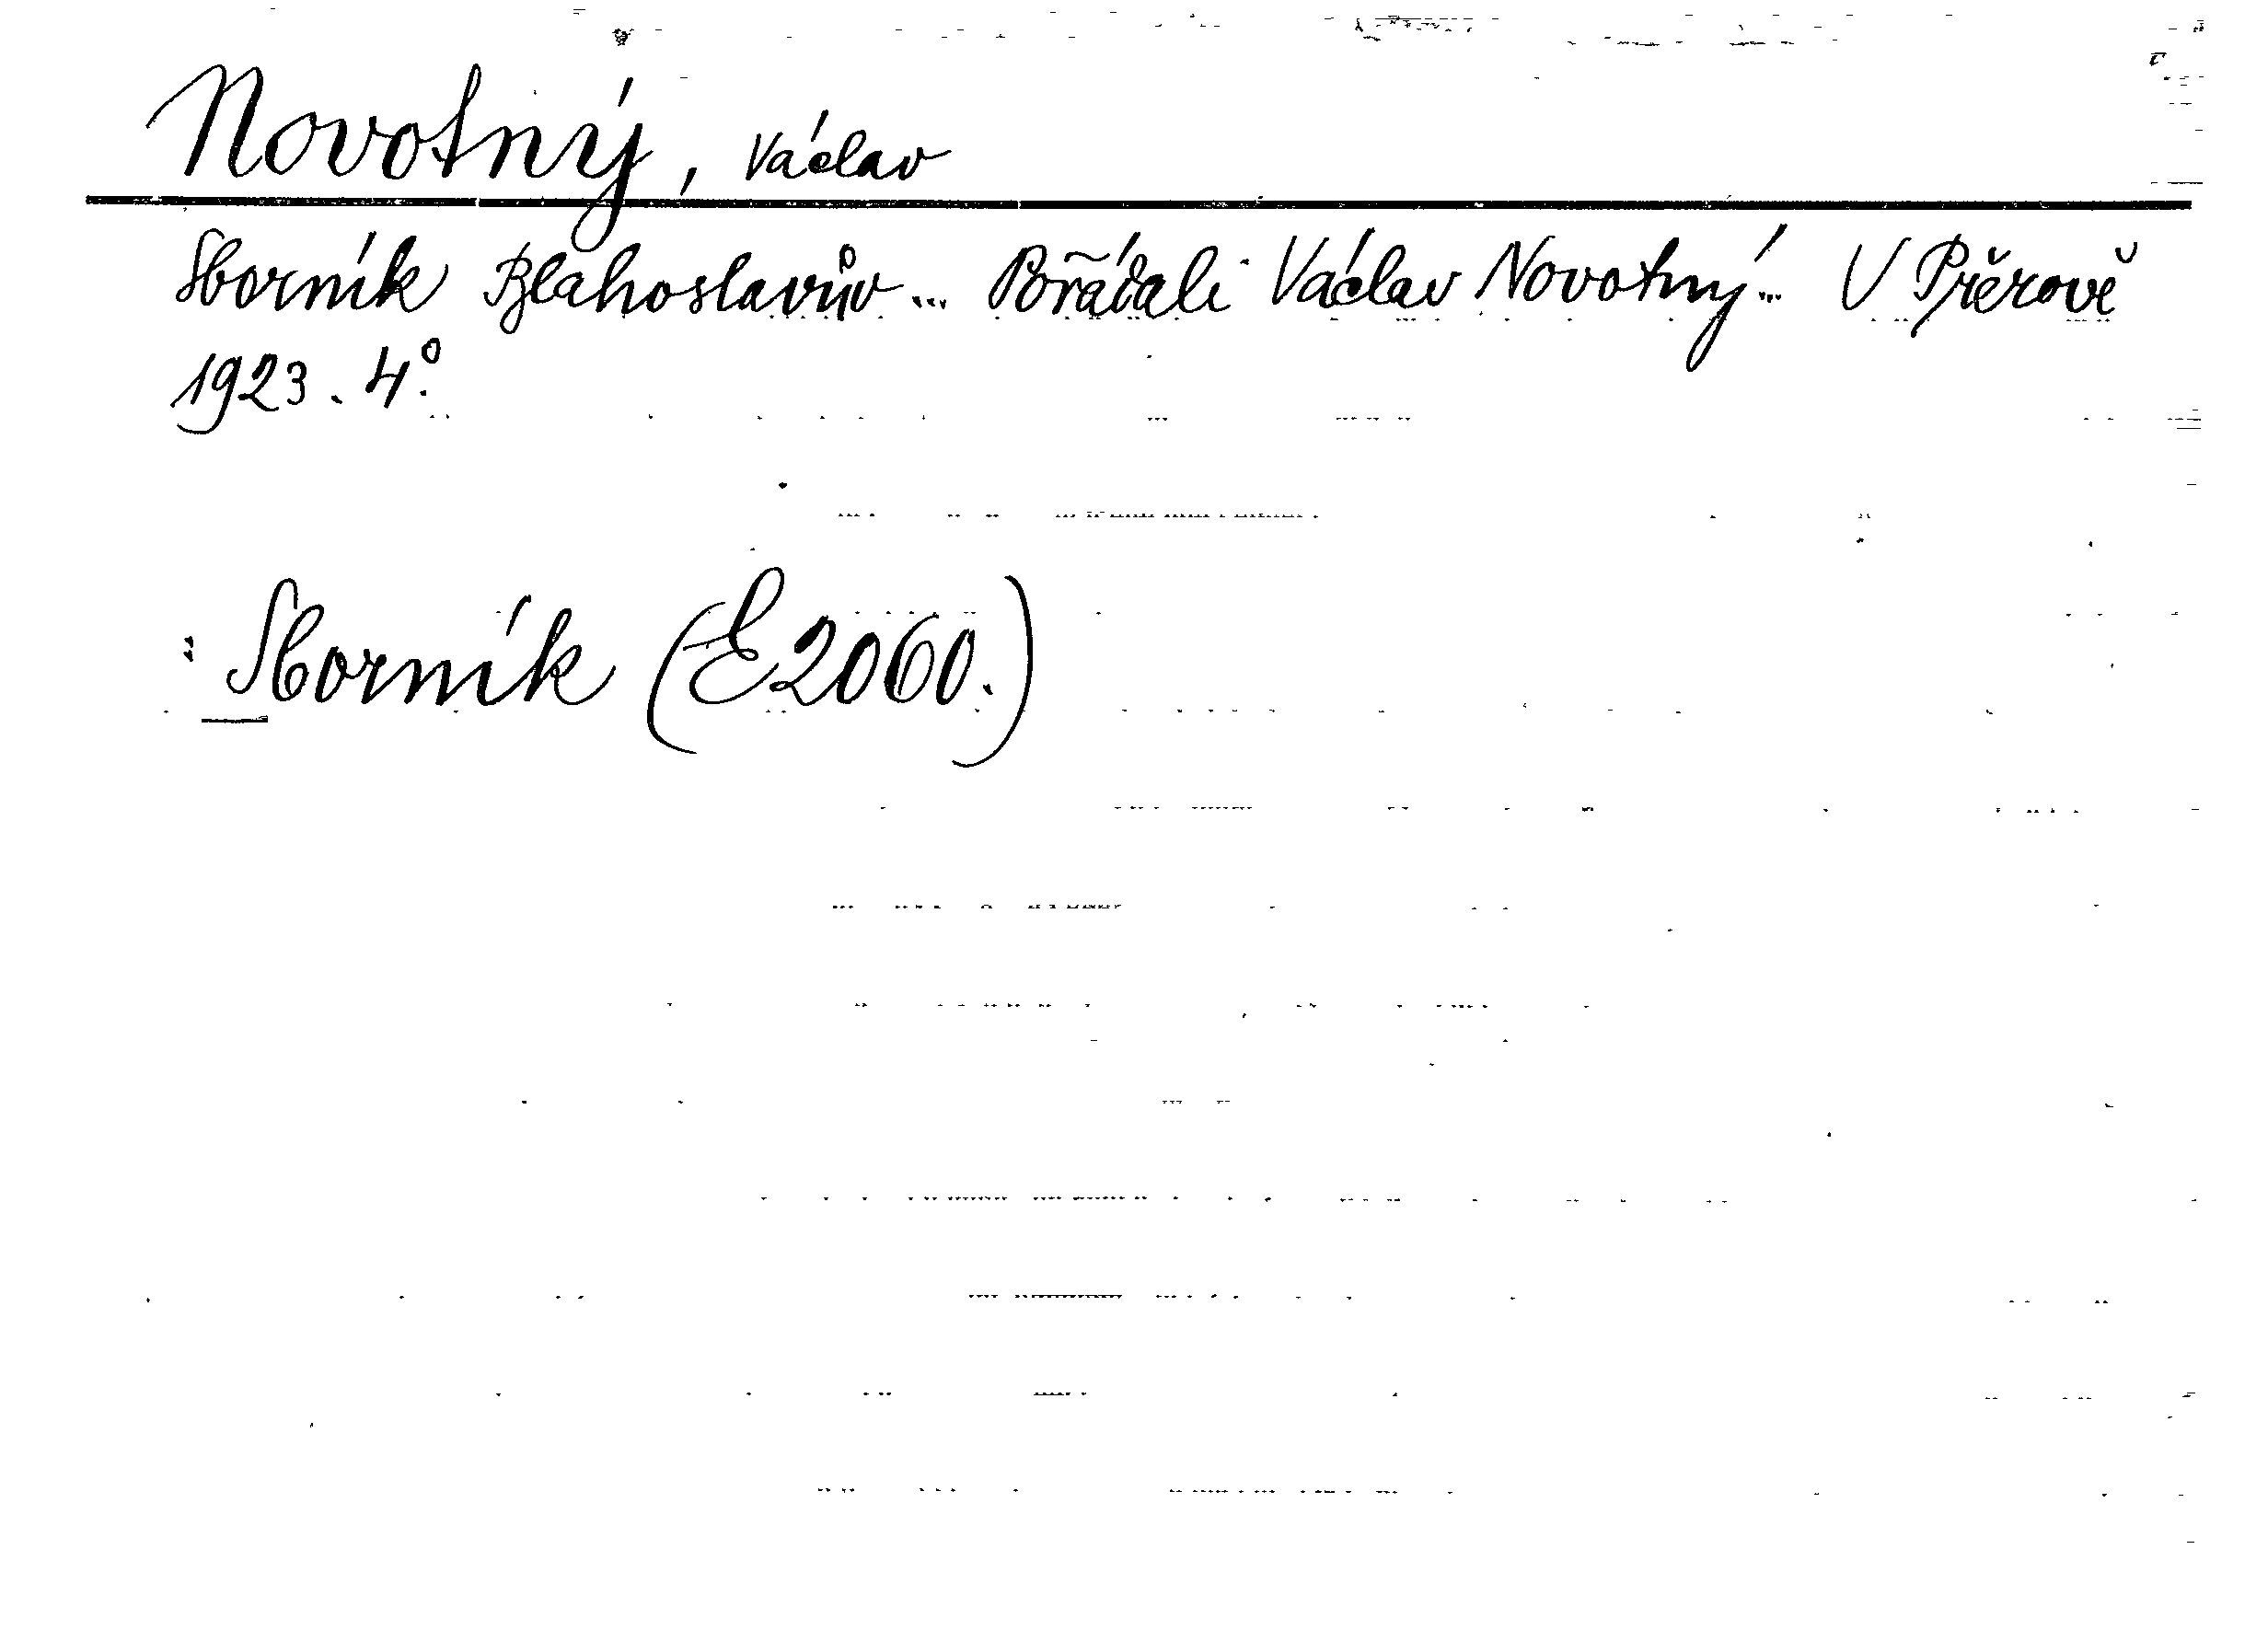 Novotný, Václav
Sborník Blahoslavův... Pořádali Václav Novotný... V Přerově
1923. 4°.
: Sborník (E2060.)